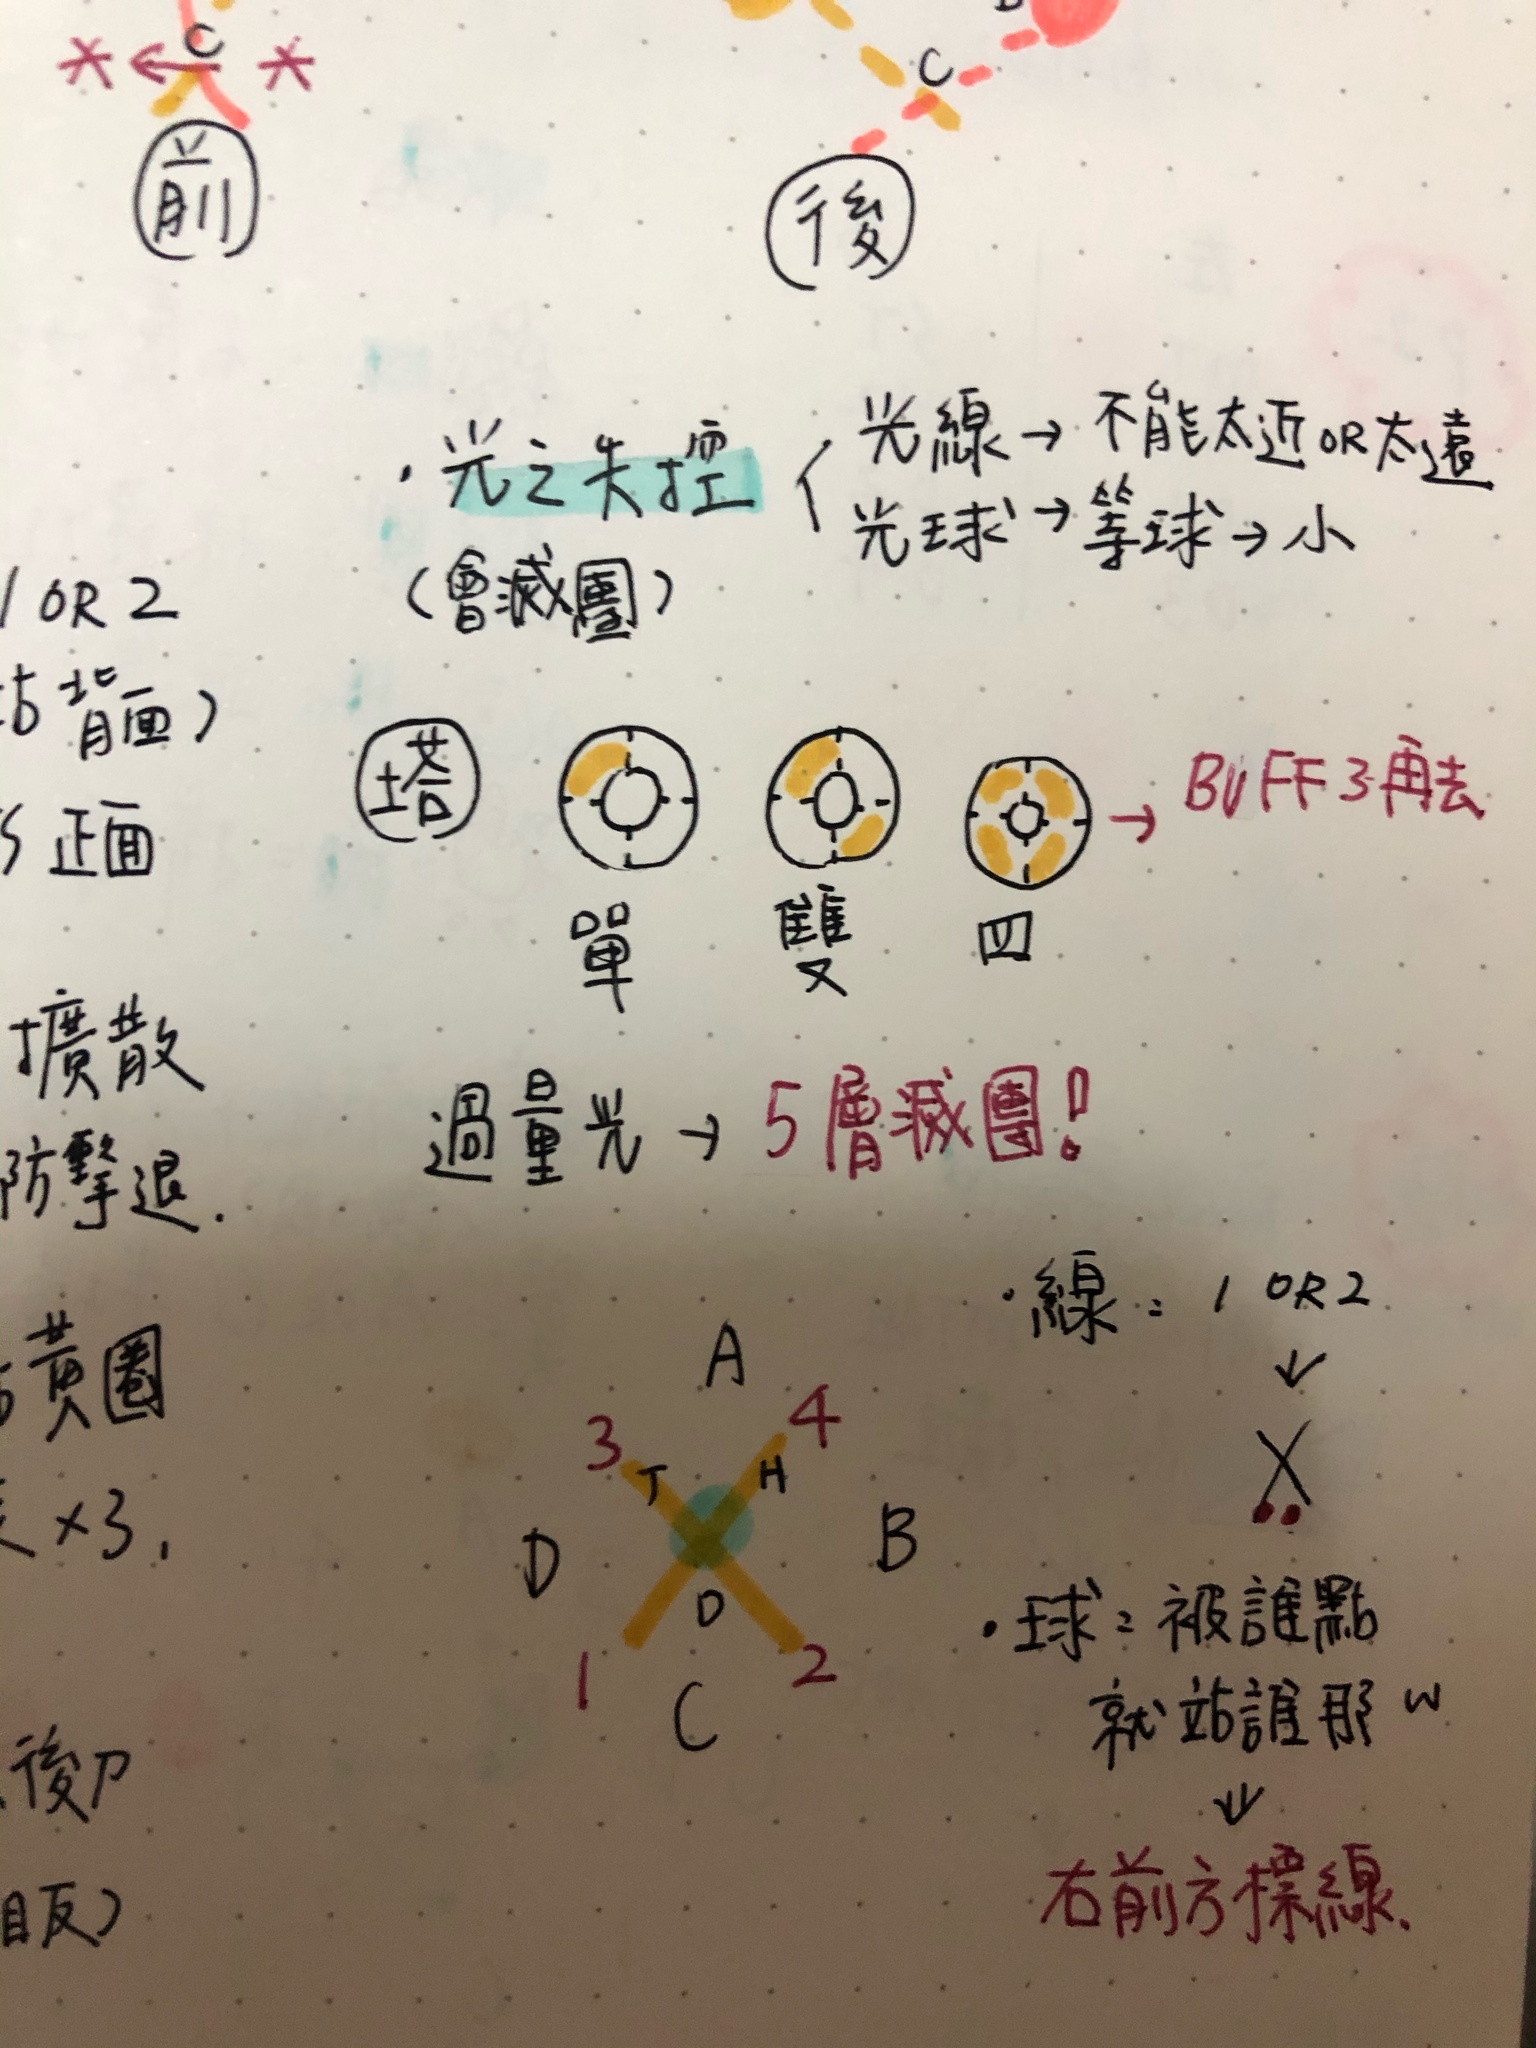 C
* ← *
前
B
C
後
・光之失控
(會滅團)
光線→不能太近OR太遠
光球→等球→小
1 OR 2
站背面)
正面
塔
單
雙
四
→ BUFF 3再去
擴散
防擊退.
過量光→5層滅團!
黃圈
×3.
後刀
相反)
A
3 4
T H
D B
D
1 2
C
・線：1 OR 2
↓
X
・球：被誰點
就站誰那 w
↓
右前方標線.